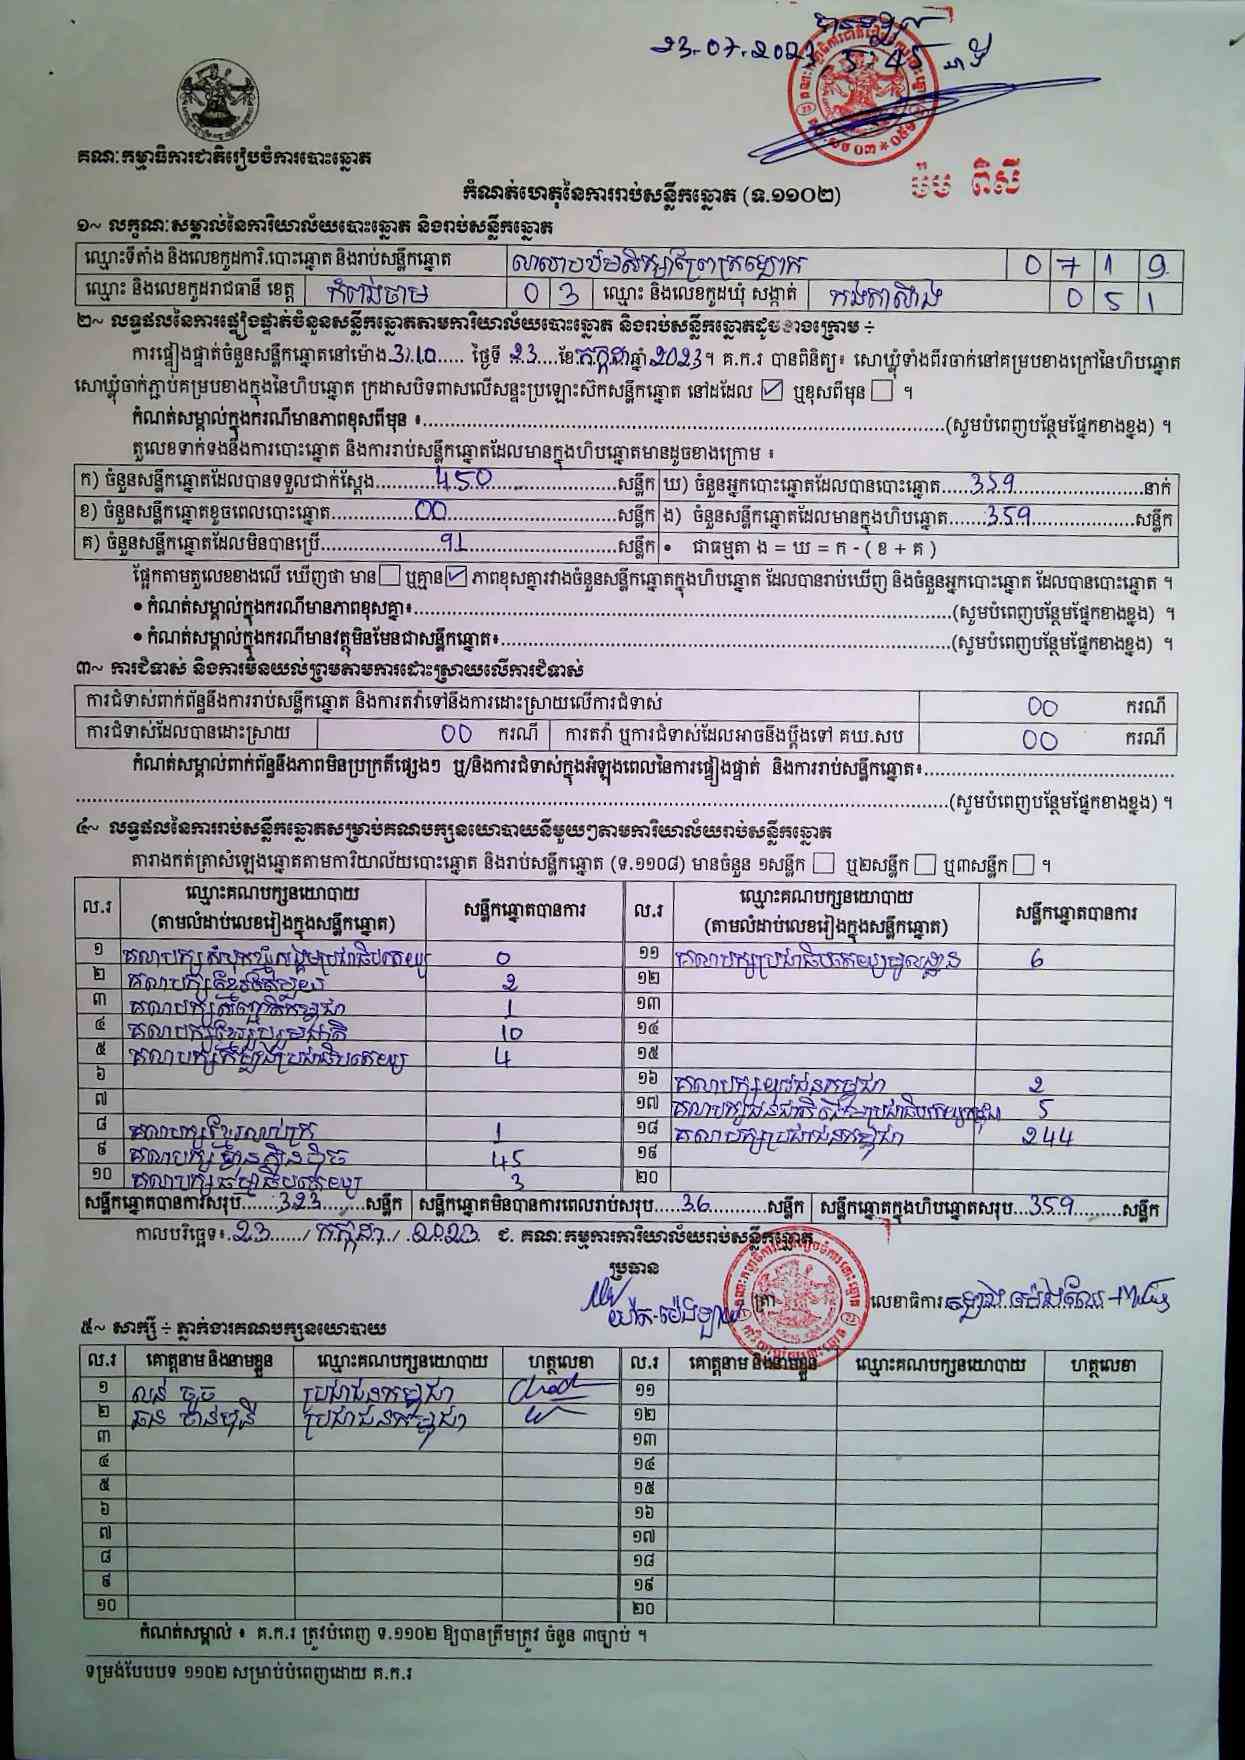 បានឃើញ
23.07.2023 5:45 នាទី
ម៉ម ពិសី
គណៈកម្មាធិការជាតិរៀបចំការបោះឆ្នោត
កំណត់ហេតុនៃការរាប់សន្លឹកឆ្នោត (ទ.១១០២)
១~ លក្ខណៈសម្គាល់នៃការិយាល័យបោះឆ្នោត និងរាប់សន្លឹកឆ្នោត
ឈ្មោះទីតាំង និងលេខកូដការិ.បោះឆ្នោត និងរាប់សន្លឹកឆ្នោត 0 7 1 9
ឈ្មោះ និងលេខកូដរាជធានី ខេត្ត កំពង់ចាម 0 3 ឈ្មោះ និងលេខកូដឃុំ សង្កាត់ 0 5 1
២~ លទ្ធផលនៃការផ្ទៀងផ្ទាត់ចំនួនសន្លឹកឆ្នោតតាមការិយាល័យបោះឆ្នោត និងរាប់សន្លឹកឆ្នោតដូចខាងក្រោម ÷
ការផ្ទៀងផ្ទាត់ចំនួនសន្លឹកឆ្នោតនៅម៉ោង 3:10 ថ្ងៃទី 23 ខែ កក្កដា ឆ្នាំ 2023 ។ គ.ក.រ បានពិនិត្យ៖ សោឃ្លុំទាំងពីរចាក់នៅគម្របខាងក្រៅនៃហិបឆ្នោត
សោឃ្លុំចាក់ភ្ជាប់គម្របខាងក្នុងនៃហិបឆ្នោត ក្រដាសបិទពាសលើសន្ទះប្រឡោះស៊កសន្លឹកឆ្នោត នៅដដែល ☑ ឬខុសពីមុន ☐ ។
កំណត់សម្គាល់ក្នុងករណីមានភាពខុសពីមុន ៖ (សូមបំពេញបន្ថែមផ្នែកខាងខ្នង) ។
តួលេខទាក់ទងនឹងការបោះឆ្នោត និងការរាប់សន្លឹកឆ្នោតដែលមានក្នុងហិបឆ្នោតមានដូចខាងក្រោម ៖
ក) ចំនួនសន្លឹកឆ្នោតដែលបានទទួលជាក់ស្តែង 450 សន្លឹក ឃ) ចំនួនអ្នកបោះឆ្នោតដែលបានបោះឆ្នោត 359 នាក់
ខ) ចំនួនសន្លឹកឆ្នោតខូចពេលបោះឆ្នោត 00 សន្លឹក ង) ចំនួនសន្លឹកឆ្នោតដែលមានក្នុងហិបឆ្នោត 359 សន្លឹក
គ) ចំនួនសន្លឹកឆ្នោតដែលមិនបានប្រើ 91 សន្លឹក • ជាធម្មតា ង = ឃ = ក - ( ខ + គ )
ផ្អែកតាមតួលេខខាងលើ ឃើញថា មាន ☐ ឬគ្មាន ☑ ភាពខុសគ្នារវាងចំនួនសន្លឹកឆ្នោតក្នុងហិបឆ្នោត ដែលបានរាប់ឃើញ និងចំនួនអ្នកបោះឆ្នោត ដែលបានបោះឆ្នោត ។
• កំណត់សម្គាល់ក្នុងករណីមានភាពខុសគ្នា៖ (សូមបំពេញបន្ថែមផ្នែកខាងខ្នង) ។
• កំណត់សម្គាល់ក្នុងករណីមានវត្ថុមិនមែនជាសន្លឹកឆ្នោត៖ (សូមបំពេញបន្ថែមផ្នែកខាងខ្នង) ។
៣~ ការជំទាស់ និងការមិនយល់ព្រមតាមការដោះស្រាយលើការជំទាស់
ការជំទាស់ពាក់ព័ន្ធនឹងការរាប់សន្លឹកឆ្នោត និងការតវ៉ាទៅនឹងការដោះស្រាយលើការជំទាស់ 00 ករណី
ការជំទាស់ដែលបានដោះស្រាយ 00 ករណី ការតវ៉ា ឬការជំទាស់ដែលអាចនឹងប្តឹងទៅ គឃ.សប 00 ករណី
កំណត់សម្គាល់ពាក់ព័ន្ធនឹងភាពមិនប្រក្រតីផ្សេងៗ ឬ/និងការជំទាស់ក្នុងអំឡុងពេលនៃការផ្ទៀងផ្ទាត់ និងការរាប់សន្លឹកឆ្នោត៖
(សូមបំពេញបន្ថែមផ្នែកខាងខ្នង) ។
៤~ លទ្ធផលនៃការរាប់សន្លឹកឆ្នោតសម្រាប់គណបក្សនយោបាយនីមួយៗតាមការិយាល័យរាប់សន្លឹកឆ្នោត
តារាងកត់ត្រាសំឡេងឆ្នោតតាមការិយាល័យបោះឆ្នោត និងរាប់សន្លឹកឆ្នោត (ទ.១១០៨) មានចំនួន ១សន្លឹក ☐ ឬ២សន្លឹក ☐ ឬ៣សន្លឹក ☐ ។
ល.រ ឈ្មោះគណបក្សនយោបាយ (តាមលំដាប់លេខរៀងក្នុងសន្លឹកឆ្នោត) សន្លឹកឆ្នោតបានការ ល.រ ឈ្មោះគណបក្សនយោបាយ (តាមលំដាប់លេខរៀងក្នុងសន្លឹកឆ្នោត) សន្លឹកឆ្នោតបានការ
១ គណបក្សសំបុកឃ្មុំសង្គមប្រជាធិបតេយ្យ 0 ១១ គណបក្សប្រជាធិបតេយ្យមូលដ្ឋាន 6
២ គណបក្សខ្មែរតែមួយ 2 ១២
៣ គណបក្សសញ្ជាតិកម្ពុជា 1 ១៣
៤ គណបក្សខ្មែររួបរួមជាតិ 10 ១៤
៥ គណបក្សកម្លាំងប្រជាធិបតេយ្យ 4 ១៥
៦ ១៦ គណបក្សយុវជនកម្ពុជា 2
៧ ១៧ 5
៨ គណបក្សខ្មែរឈប់ក្រ 1 ១៨ គណបក្សប្រជាជនកម្ពុជា 244
៩ គណបក្សហ្វ៊ុនស៊ិនប៉ិច 45 ១៩
១០ គណបក្សធម្មាធិបតេយ្យ 3 ២០
សន្លឹកឆ្នោតបានការសរុប 323 សន្លឹក សន្លឹកឆ្នោតមិនបានការពេលរាប់សរុប 36 សន្លឹក សន្លឹកឆ្នោតក្នុងហិបឆ្នោតសរុប 359 សន្លឹក
កាលបរិច្ឆេទ៖ 23 / កក្កដា / 2023 ជ. គណៈកម្មការការិយាល័យរាប់សន្លឹកឆ្នោត
ប្រធាន ត្រា លេខាធិការ
៥~ សាក្សី ÷ ភ្នាក់ងារគណបក្សនយោបាយ
ល.រ គោត្តនាម និងនាមខ្លួន ឈ្មោះគណបក្សនយោបាយ ហត្ថលេខា ល.រ គោត្តនាម និងនាមខ្លួន ឈ្មោះគណបក្សនយោបាយ ហត្ថលេខា
១ ប្រជាជនកម្ពុជា ១១
២ ប្រជាជនកម្ពុជា ១២
៣ ១៣
៤ ១៤
៥ ១៥
៦ ១៦
៧ ១៧
៨ ១៨
៩ ១៩
១០ ២០
កំណត់សម្គាល់ ៖ គ.ក.រ ត្រូវបំពេញ ទ.១១០២ ឱ្យបានត្រឹមត្រូវ ចំនួន ៣ច្បាប់ ។
ទម្រង់បែបបទ ១១០២ សម្រាប់បំពេញដោយ គ.ក.រ